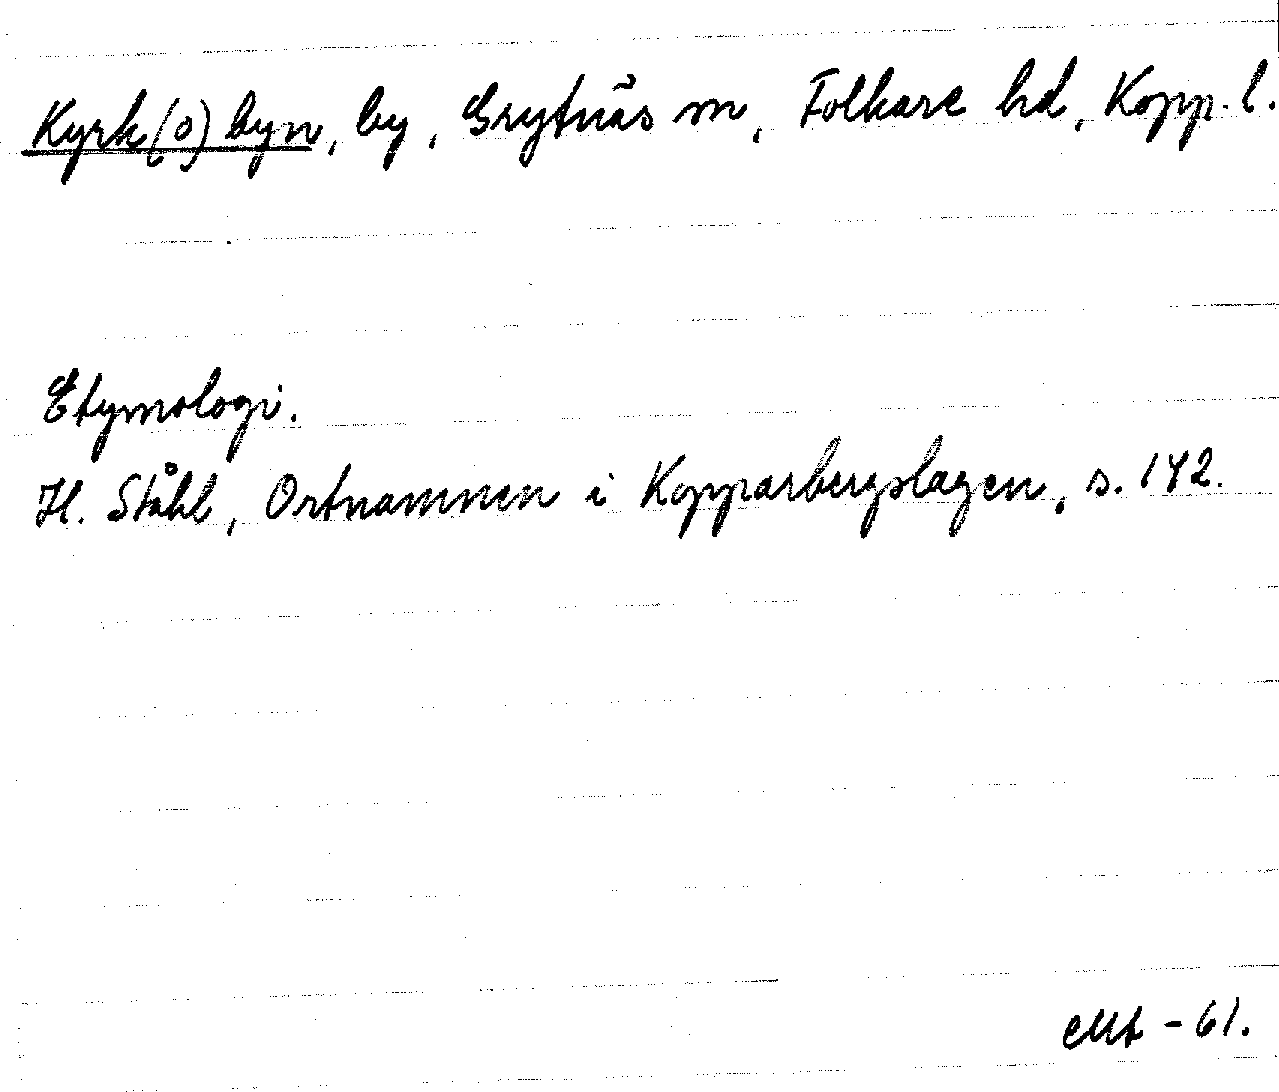 Kyrk(o)byn, by, Grytnäs sn, Folkare hd, Kopp. l.
Etymologi.
H. Ståhl, Ortnamnen i Kopparbergslagen, s. 142.
- 61.